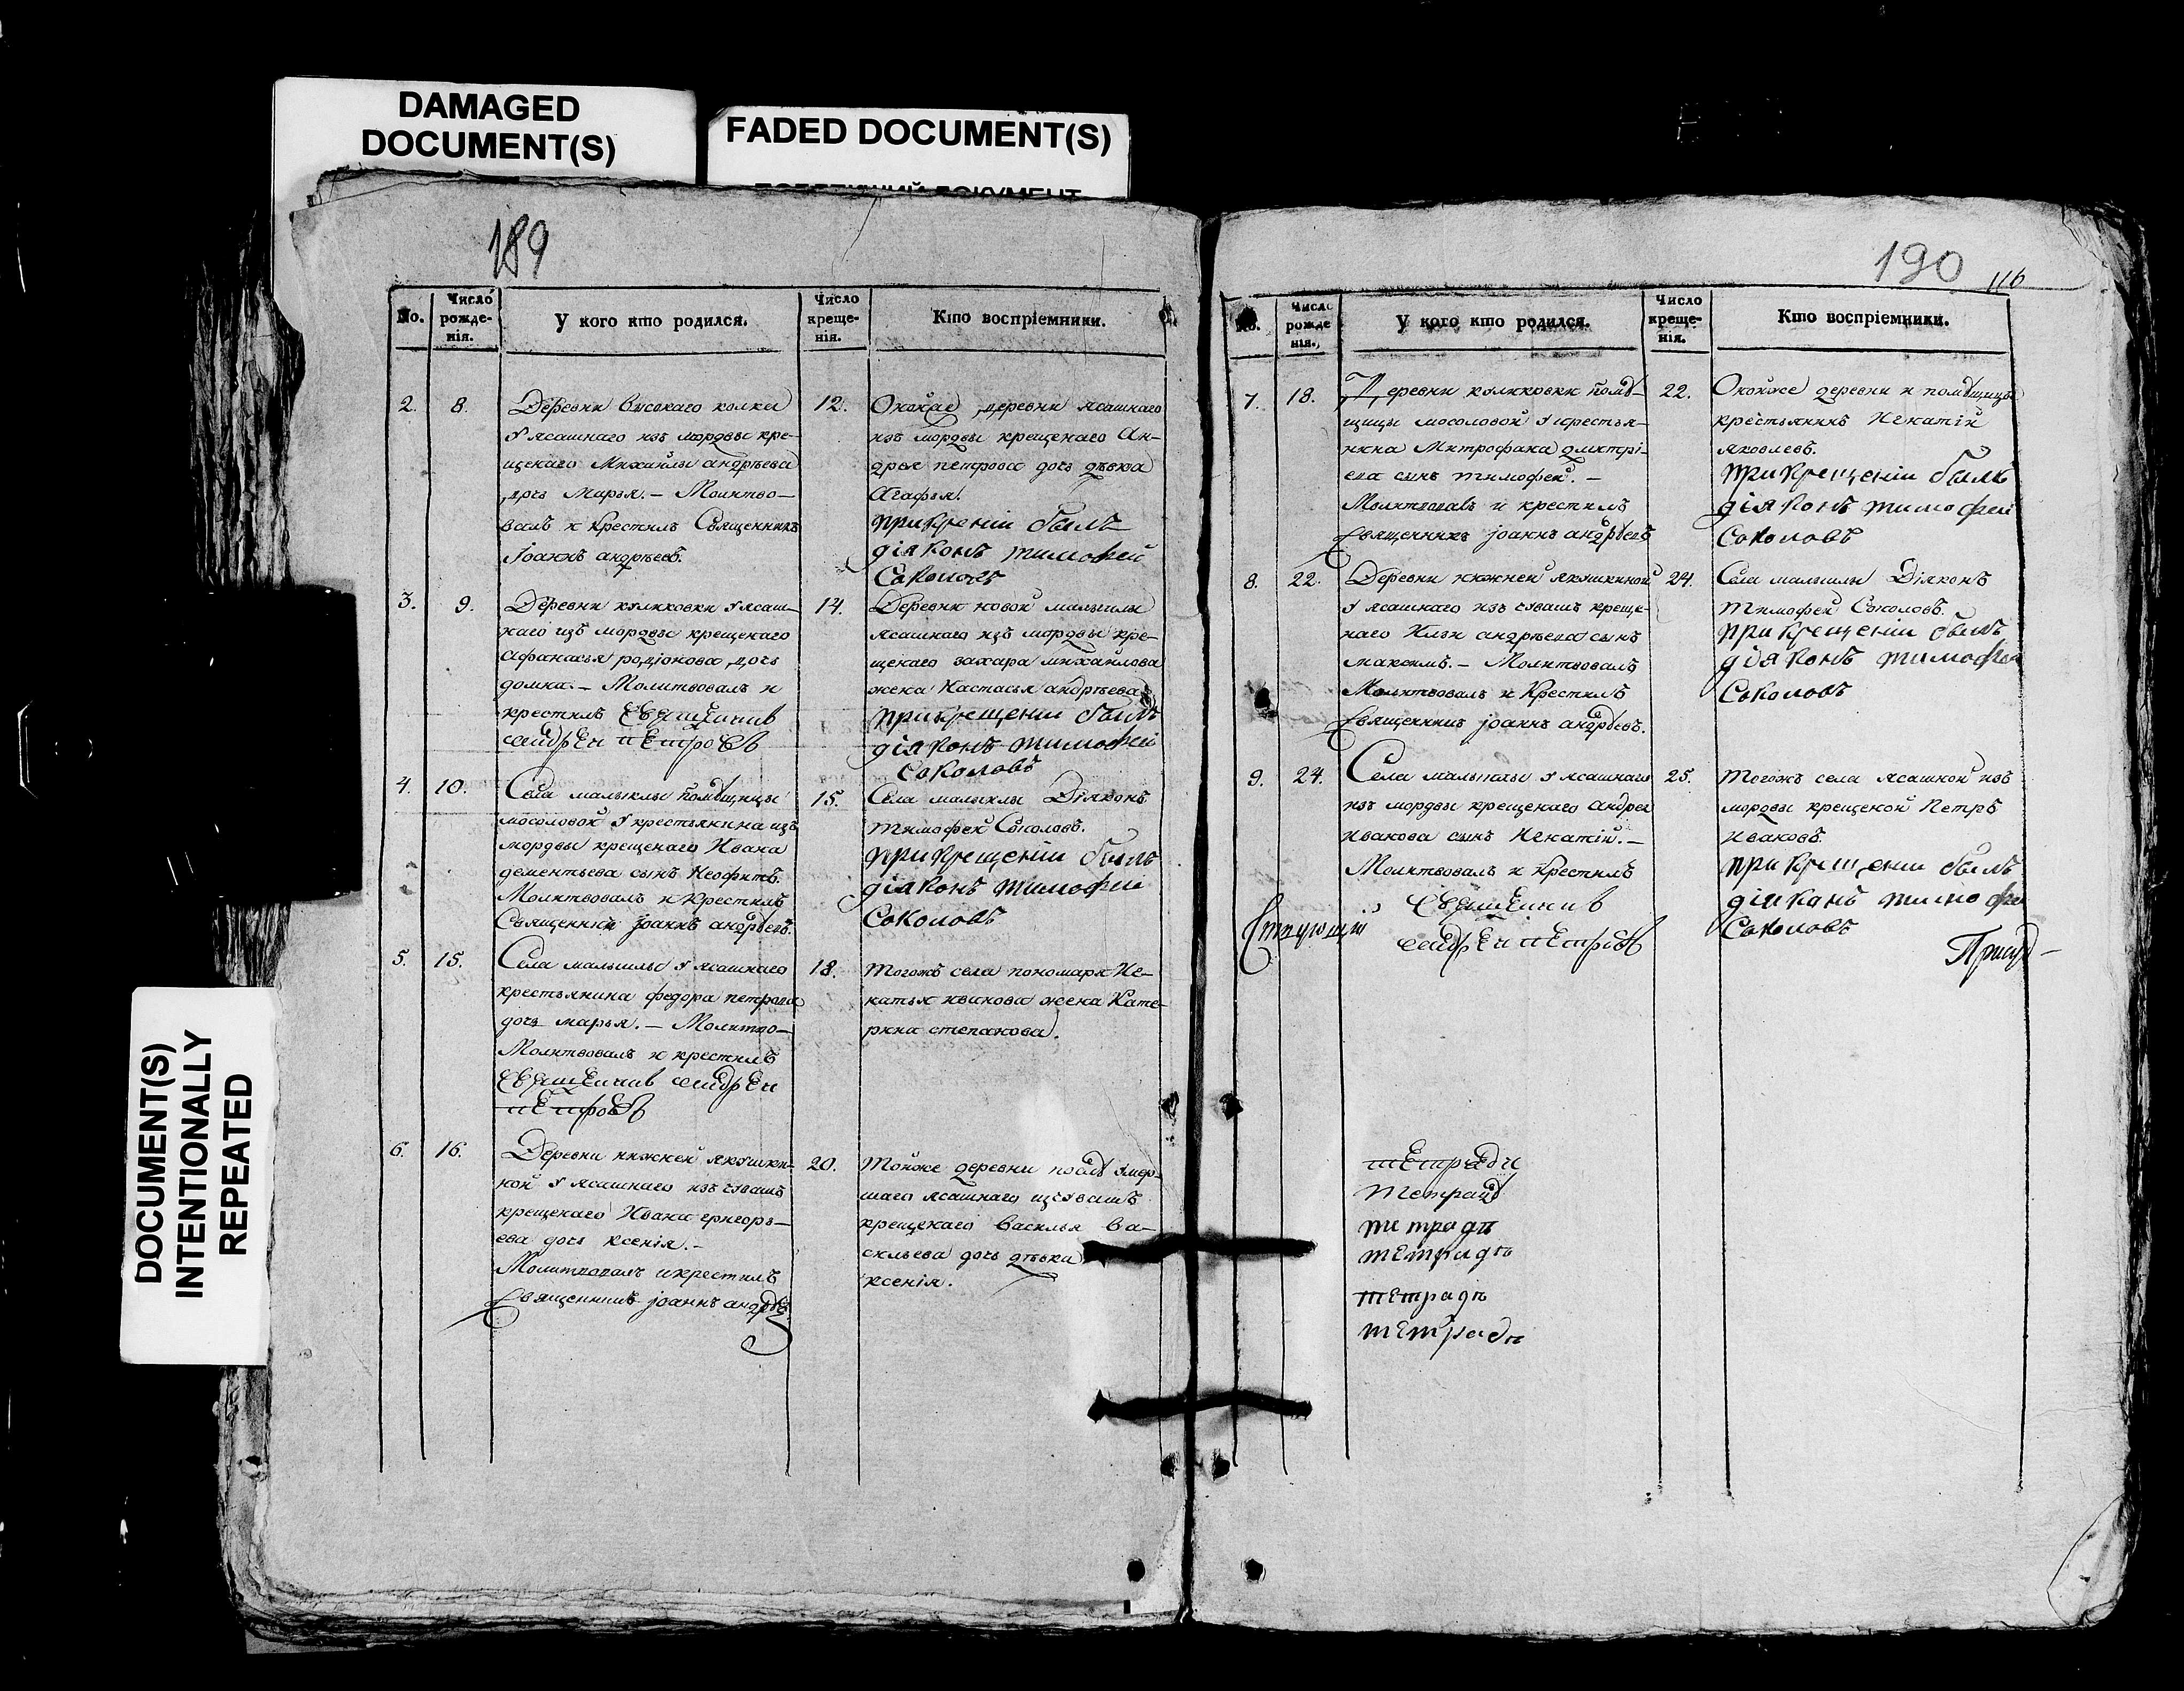 DAMAGED
DOCUMENT(S)
FADED DOCUMENT(S)
DOCUMENT(S)
INTENTIONALLY
REPEATED
189
No.
Число
рожде-
нія.
У кого кто родился.
Число
креще-
нія.
Кто воспріемники.
2.
8.
Деревни высокаго колка
у ясашнаго изъ мордвы кре-
щенаго Михайлы андрѣева
дочь Марья. – Молитво-
валъ и крестилъ Священникъ
Іоаннъ андрѣевъ.
12.
Оной же деревни ясашнаго
изъ мордвы крещенаго Ан-
дрея петрова дочь дѣвка
Агафья.
при крещеніи былъ
діяконъ тимофей
Соколовъ
3.
9.
Деревни куликовки у ясаш-
наго изъ мордвы крещенаго
Афанасья родіонова дочь
домна. – Молитвовалъ и
крестилъ священникъ
андреи петровъ
14.
Деревни новой малыклы
ясашнаго изъ мордвы кре-
щенаго захара михайлова
жена Настасья андрѣева
при крещеніи былъ
діяконъ тимофей
Соколовъ
4.
10.
Села малыклы помѣщицы
мосоловой у крестьянина изъ
мордвы крещенаго Ивана
дементьева сынъ Неофитъ.
Молитвовалъ и крестилъ
Священникъ Іоаннъ андрѣевъ.
15.
Села малыклы Діяконъ
тимофей Соколовъ.
при крещеніи былъ
діяконъ тимофей
Соколовъ
5.
15.
Села малыклы у ясашнаго
крестьянина федора петрова
дочь марья. – Молитво-
Молитвовалъ и крестилъ
священникъ андреи
петровъ
18.
тогожъ села пономаря Иг-
натья иванова жена Кате-
рина степанова.
6.
16.
Деревни нижней якушки-
ной у ясашнаго изъ чувашъ
крещенаго Ивана григорь-
ева дочь ксенія. –
Молитвовалъ и крестилъ
священникъ іоаннъ андрѣевъ
20.
той же деревни послѣ умер-
шаго ясашнаго изъ чувашъ
крещенаго василья ва-
сильева дочь дѣвка
ксенія.
190
116
No.
Число
рожде
нія.
У кого кто родился.
Число
креще-
нія.
Кто воспріемники.
7.
18.
Деревни куликовки помѣ-
щицы мосоловой у крестья-
нина Митрофана дмитрі-
ева сынъ тимофей. –
Молитвовалъ и крестилъ
священникъ іоаннъ андрѣевъ
22.
Оной же деревни и помѣщицы
крестьянинъ Игнатій
яковлевъ.
при крещеніи былъ
діяконъ тимофей
Соколовъ
8.
22.
Деревни нижней якушкиной
у ясашнаго изъ чувашъ креще-
наго Ильи андрѣева сынъ
максимъ. – Молитвовалъ
Молитвовалъ и крестилъ
священникъ іоаннъ андрѣевъ.
24.
Села малыклы Діяконъ
тимофей Соколовъ.
при крещеніи былъ
діяконъ тимофей
Соколовъ
9.
24.
Села малыклы у ясашнаго
изъ мордвы крещенаго андрея
иванова сынъ Игнатій. –
Молитвовалъ и крестилъ
священникъ
андреи петровъ
25.
тогожъ села ясашной изъ
мордвы крещеной Петръ
ивановъ.
при крещеніи былъ
діяконъ тимофе
Соколовъ
тетради
тетрадь
тетрадь
тетрадь
тетрадь
тетрадь